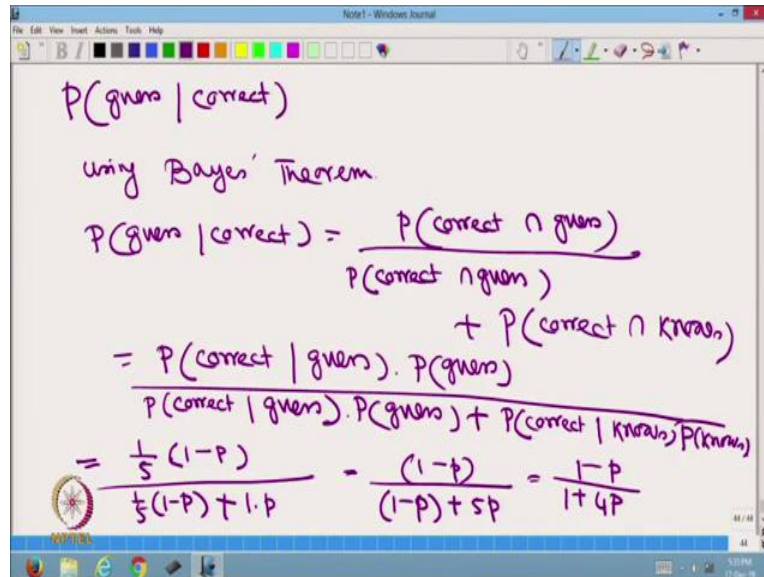 Note1 - Windows Journal
File Edit View Insert Actions Tools Help
B I
P(guess | correct)
using Bayes' Theorem.
P(guess | correct) = P(correct ∩ guess)
P(correct ∩ guess)
+ P(correct ∩ knows)
= P(correct | guess). P(guess)
P(correct | guess). P(guess) + P(correct | knows) P(knows)
= 1/5 (1-p) / 1/5 (1-p) + 1.p = (1-p) / (1-p) + 5p = 1-p / 1+4p
NPTEL
44/44
44
5:35 PM